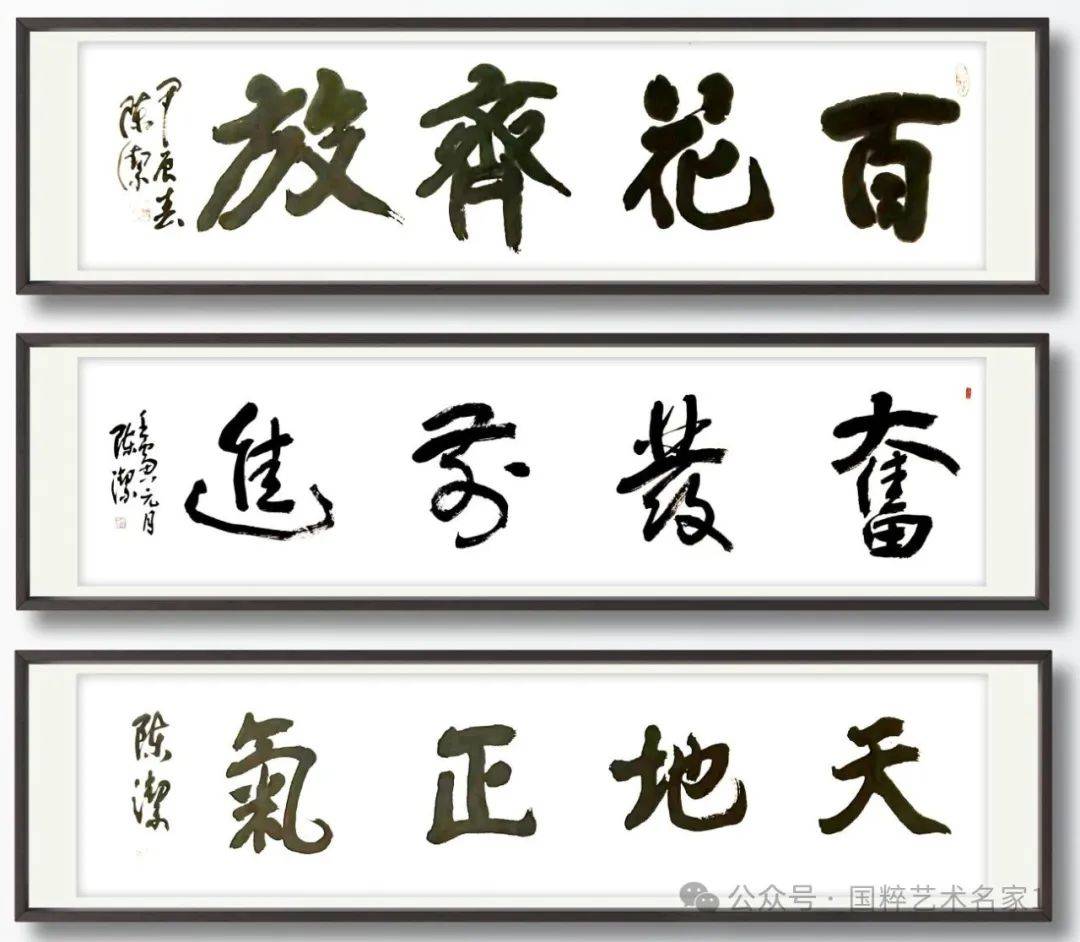 百花齊放
甲辰春
陈潔
奮發前進
壬寅元月
陈潔
天地正氣
陈潔
公众号·国粹艺术名家1